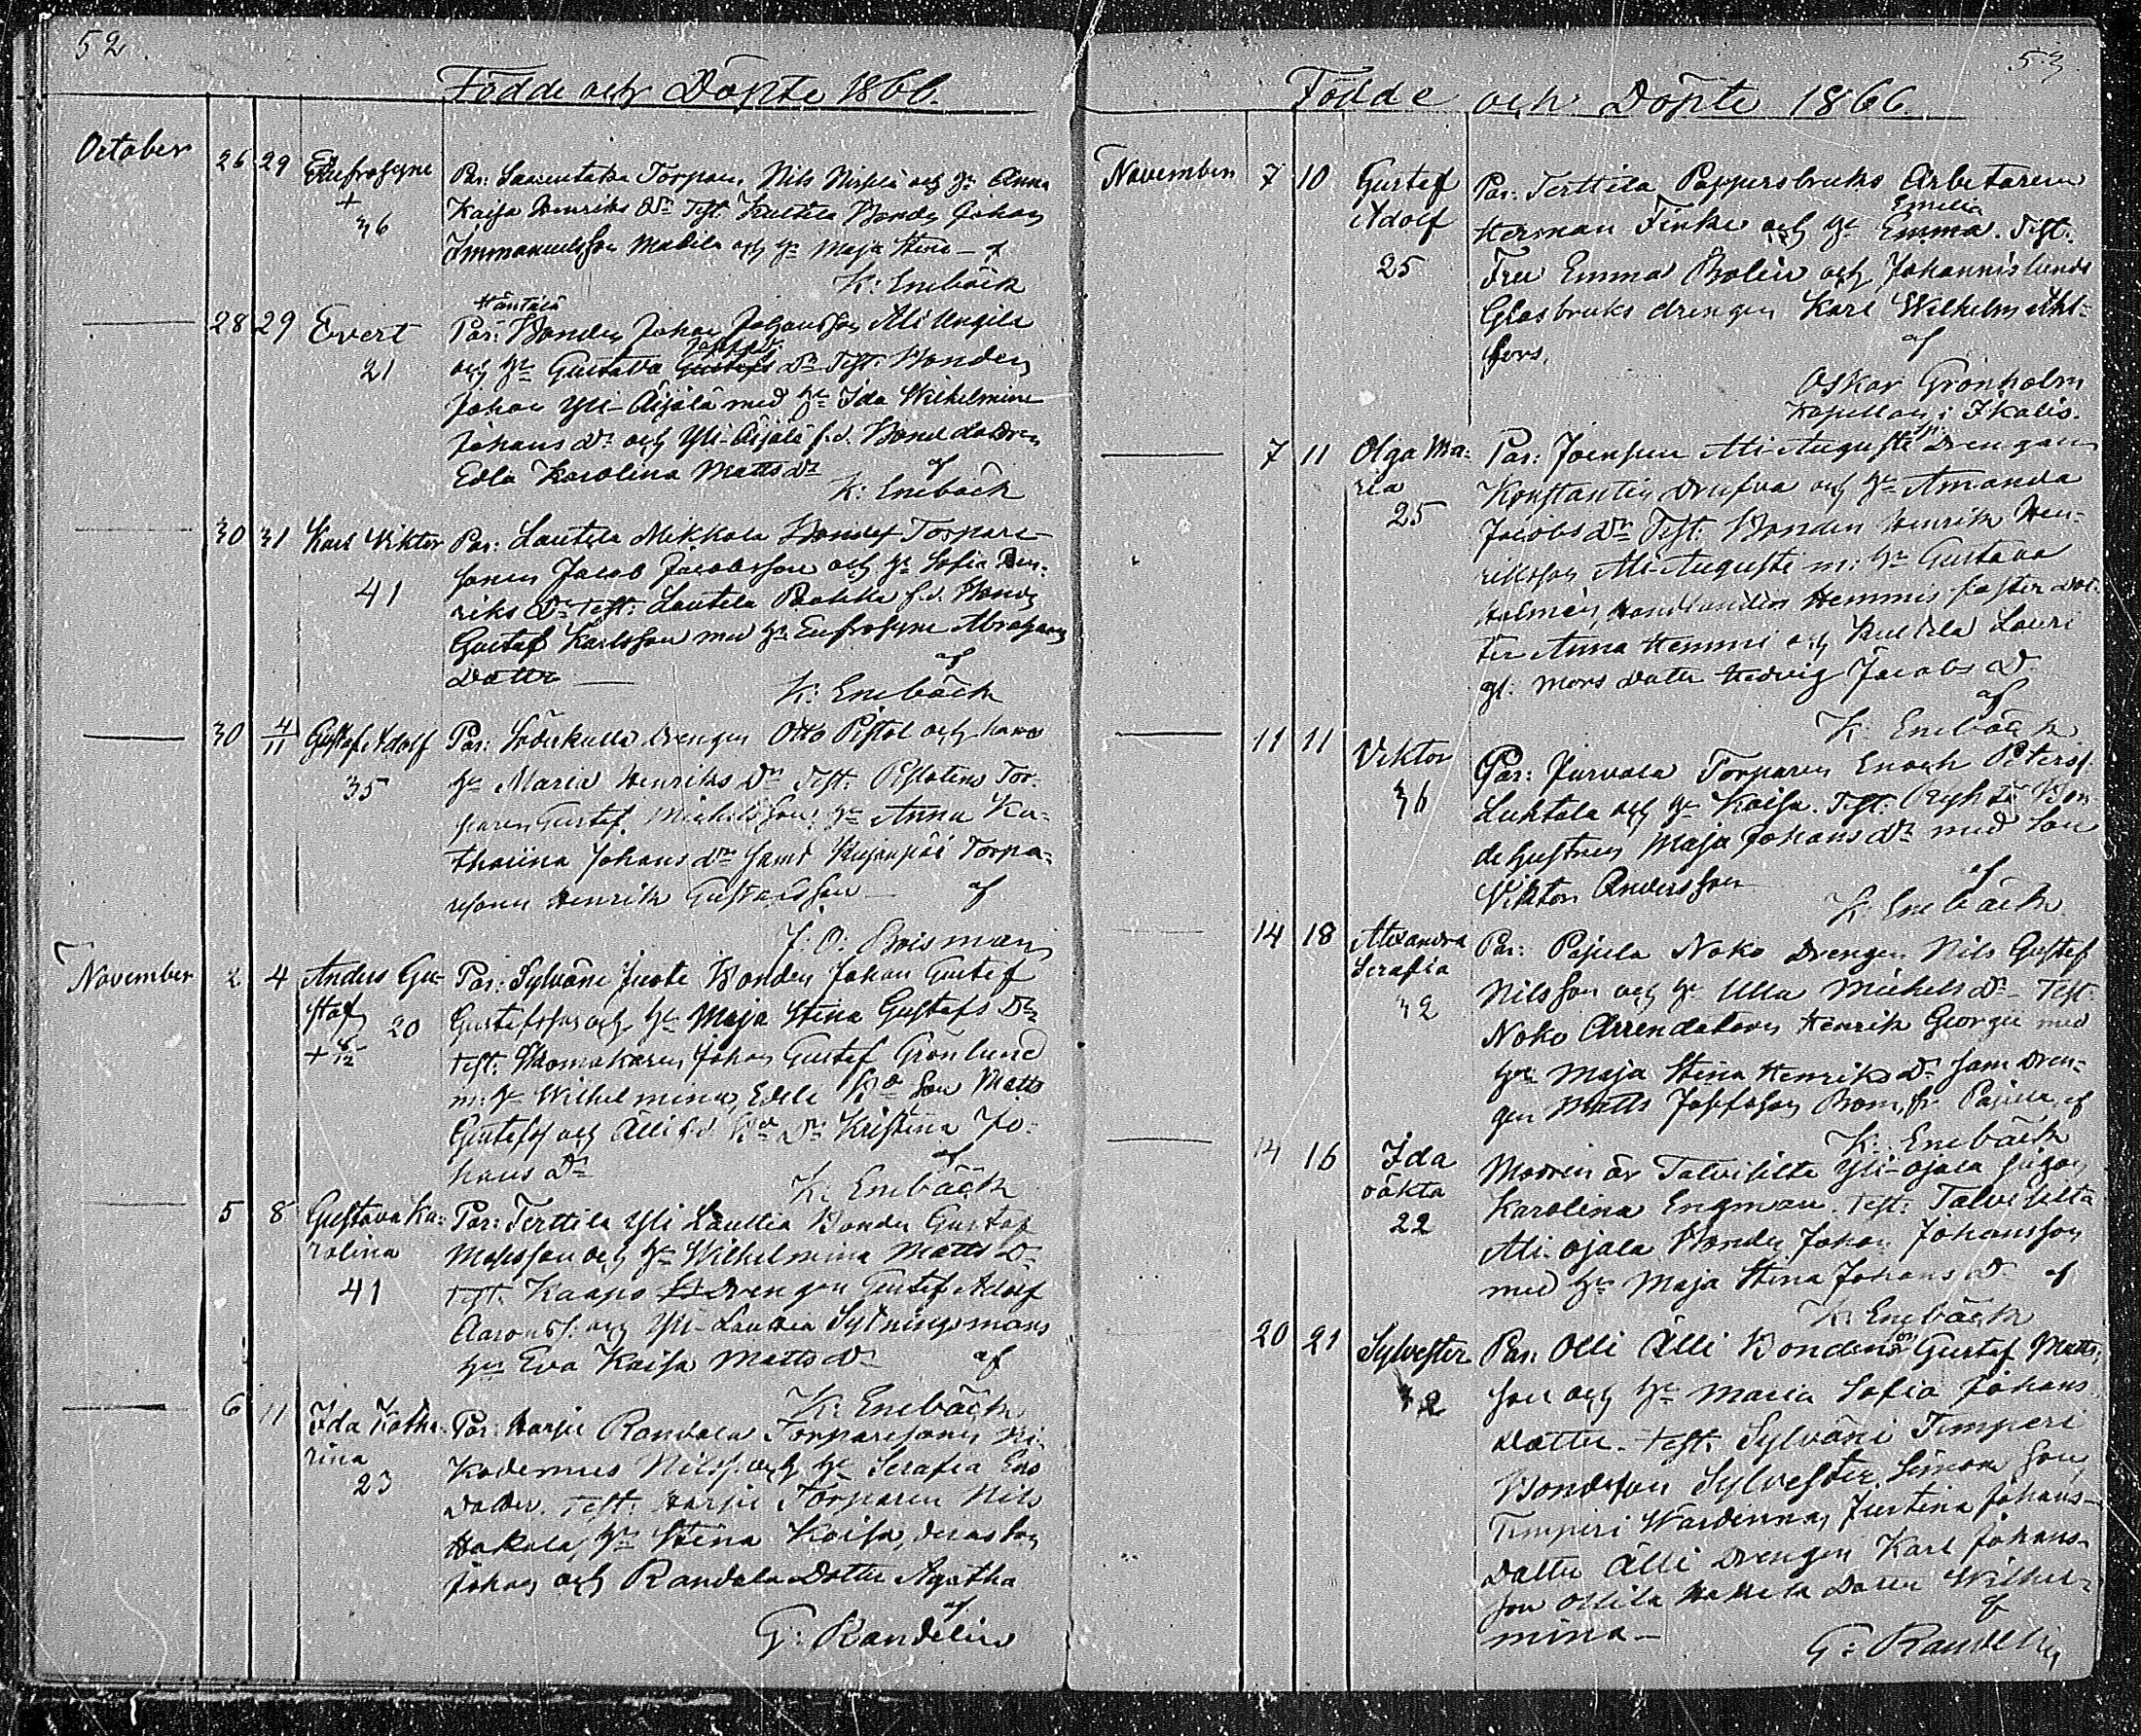 52.
Födde och Döpte 1866.
October 26 29 Eufrosyne Par: Torpar. Nils och h: Anna
+ Kaisa Henriks Dr Test. Kultila Bonde Johan
36 Immanuelsson Mabila och h: Maja Stina — af
K: Enebäck
Häntälä
— 28 29 Evert Par: Bonden Johan Johansson Ali
21 och h: Gustava Josefs Dr Test: Bonden
Johan Yli-Äijälä med h: Ida Wilhelmina
Johans Dr och Yli-Äijälä f.d. Bonde dottren
Edla Karolina Matts Dr af
K: Enebäck
— 30 31 Karl Viktor Par: Lautela Mikkola Bondes Torpare-
41 sonen Jacob Jacobsson och h: Sofia Hen-
riks Dr Test: Lautela f.d. Bonde
Gustaf Karlsson med h: Eufrosyne Abrahams
Dotter — af
K: Enebäck
— 30 4/11 Gustaf Adolf Par: Drengen Otto Pistol och hans
35 h: Maria Henriks Dr Test: Tor-
paren Gustaf Michelsson, h: Anna Ka-
thariina Johans Dr samt Torpa-
resonen Henrik Gustafsson — af
J: O: Roisman
November 2 4 Anders Gu- Par: Sylvänе Juote Bonden Johan Gustaf
staf 20 Gustafsson och h: Maja Stina Gustafs Dr
+ 8/12 Test: Skomakaren Johan Gustaf Grönlund
m: h: Wilhelmina, Son Matts
Gustafss och Älli f.d. Dr Kristina Jo-
hans Dr af
K: Enebäck
5 8 Gustava Ka- Par: Terttila Yli Laullia Bonden Gustaf
rolina och h: Wilhelmina Matts Dr
41 Test: Kaapo Drengen Gustaf Adolf
Aaronss. och Yli-Laullia Sytningsmans
h: Eva Kaisa Matts Dr af
K: Enebäck
— 6 11 Ida Katha- Par: Harju Randala Torparesonen Ni-
rina kodemus Nilss. och h: Serafia
23 Dotter. Test: Harju Torparen Nils
Hakala, h: Stina Kaisa, deras son
Johan och Randala Dotter Agatha
af
G: Randelin
53.
Födde och Döpte 1866.
November 7 10 Gustaf Par: Terttila Pappersbruks Arbetaren
Emilia
Adolf Herman Finke och h: Emma. Test.
25 Fru Emma Bolin och Johannislunds
Glasbruks drengen Karl Wilhelm Ahl-
fors. af
Oskar Grönholm
Kapellan i Ikalis.
— 7 11 Olga Ma- Par: Ali-Auguste Drengen
ria Konstantin och h: Amanda
25 Jacobs Dr Test: Bonden Henrik Hen-
riksson Ali-Auguste m: h: Gustava
Helmén, Handlanden Hemmis foster dot-
ter Anna Hemmi och Kultila Lauri
gl: mors dotter Hedvig Jacobs Dr
af
K: Enebäck
— 11 11 Viktor Par: Jurvala Torparen Enoch Peterss.
36 Luhtala och h: Kaisa. Test: Bon-
dehustrun Maja Johans Dr med Son
Viktor Andersson af
K: Enebäck
14 18 Alexandra Par: Pajula Noko Drengen Nils Gustaf
Serafia Nilsson och h: Ulla Michels Dr. Test:
32 Noko Arrendatorn Henrik Georgii med
h: Maja Stina Henriks Dr sam Dren-
gen Matts Josefsson Bom, fr. Pajula, af
K: Enebäck
— 14 16 Ida Modren är Talvisilta Yli-ojala pigan
oäkta Karolina Engman. Test: Talvisilta
22 Ali-ojala Bonden Johan Johansson
med h: Maja Stina Johans Dr af
K: Enebäck
20 21 Sylvester Par: Olli Älli Bonden Gustaf Matts-
32 son och h: Maria Sofia Johans
Dotter. Test: Sylväni Timperi
Bondeson Sylvester Simonsson,
Timperi Wärdinnan Justina Johans-
Dotter Älli Drengen Karl Johans-
son Ollila Dotter Wilhel-
mina — af
G: Randelin